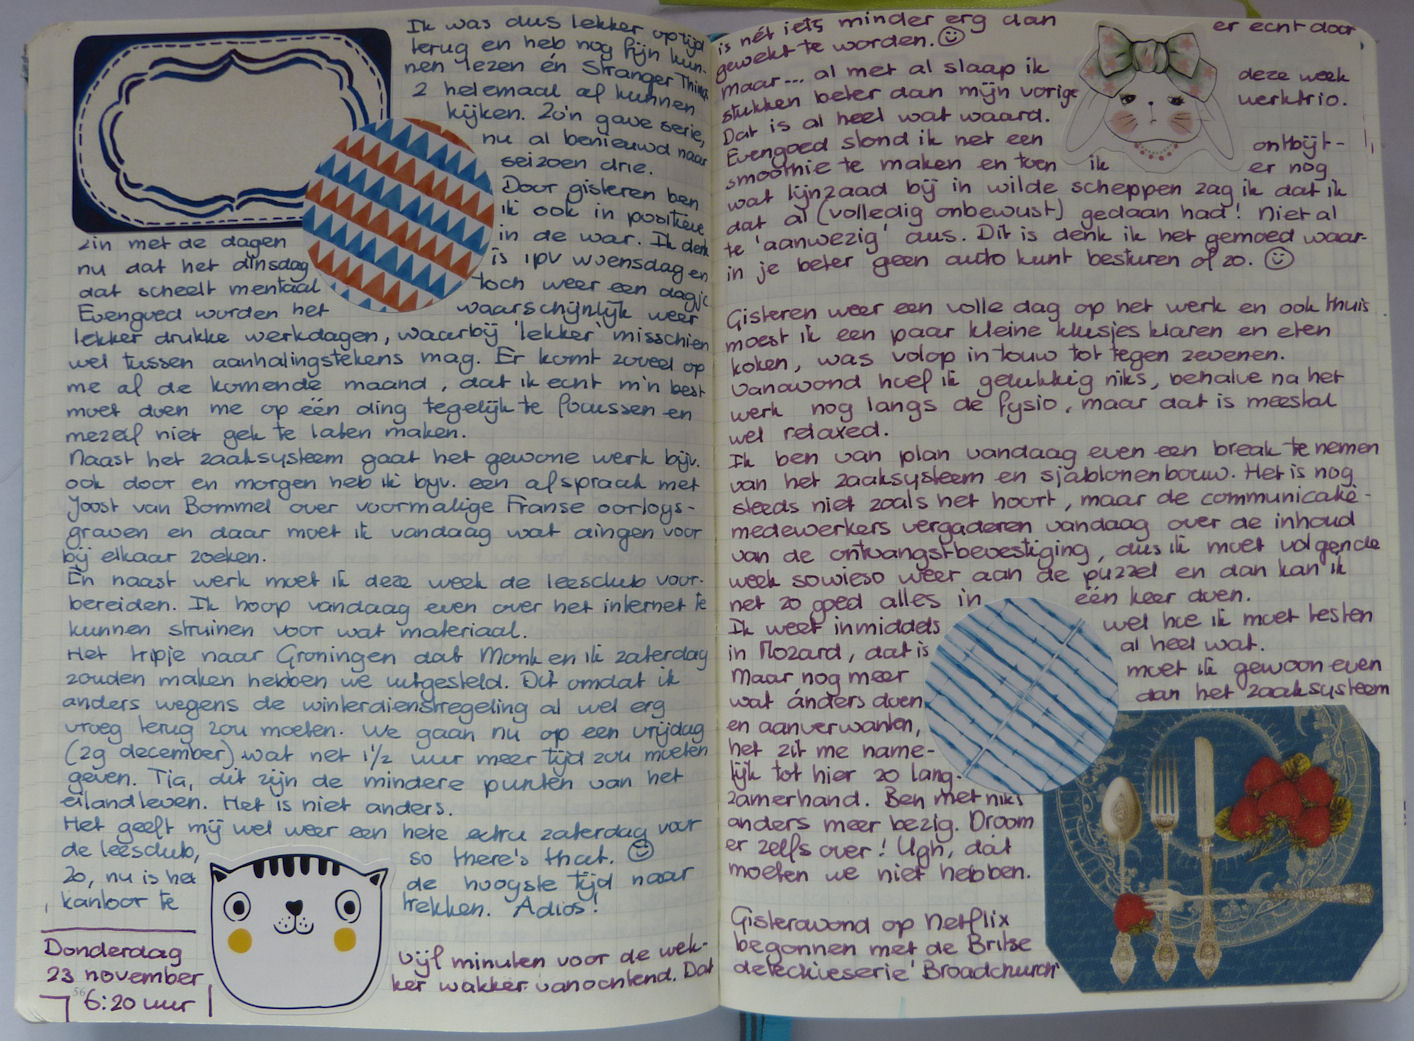 Ik was dus lekker op tijd
terug en heb nog fijn kun-
nen lezen én Stranger Things
2 helemaal af kunnen
kijken. Zo'n gave serie,
nu al benieuwd naar
seizoen drie.
Door gisteren ben
ik ook in positieve
zin met de dagen in de war. Ik denk
nu dat het dinsdag is ipv woensdag en
dat scheelt mentaal toch weer een dagje
Evengoed worden het waarschijnlijk weer
lekker drukke werkdagen, waarbij 'lekker' misschien
wel tussen aanhalingstekens mag. Er komt zoveel op
me af de komende maand, dat ik echt m'n best
moet doen me op één ding tegelijk te focussen en
mezelf niet gek te laten maken.
Naast het zaaksysteem gaat het gewone werk bijv.
ook door en morgen heb ik bijv. een afspraak met
Joost van Bommel over voormalige Franse oorlogs-
graven en daar moet ik vandaag wat dingen voor
bij elkaar zoeken.
En naast werk moet ik deze week de leesclub voor-
bereiden. Ik hoop vandaag even over het internet te
kunnen struinen voor wat materiaal.
Het tripje naar Groningen dat Monk en ik zaterdag
zouden maken hebben we uitgesteld. Dit omdat ik
anders wegens de winterdienstregeling al wel erg
vroeg terug zou moeten. We gaan nu op een vrijdag
(29 december) wat net 1½ uur meer tijd zou moeten
geven. Tja, dit zijn de mindere punten van het
eilandleven. Het is niet anders.
Het geeft mij wel weer een hele extra zaterdag voor
de leesclub, so there's that. ☺
Zo, nu is het de hoogste tijd naar
kantoor te trekken. Adios!
Donderdag
23 november
56 6:20 uur
Vijf minuten voor de wek-
ker wakker vanochtend. Dat
is nét iets minder erg dan er echt door
gewekt te worden. ☺
maar... al met al slaap ik deze week
stukken beter dan mijn vorige werktrio.
Dat is al heel wat waard.
Evengoed stond ik net een ontbijt-
smoothie te maken en toen ik er nog
wat lijnzaad bij in wilde scheppen zag ik dat ik
dat al (volledig onbewust) gedaan had! Niet al
te 'aanwezig' dus. Dit is denk ik het gemoed waar-
in je beter geen auto kunt besturen of zo. ☺
Gisteren weer een volle dag op het werk en ook thuis
moest ik een paar kleine klusjes klaren en eten
koken, was volop in touw tot tegen zevenen.
Vanavond hoef ik gelukkig niks, behalve na het
werk nog langs de fysio, maar dat is meestal
wel relaxed.
Ik ben van plan vandaag even een break te nemen
van het zaaksysteem en sjablonenbouw. Het is nog
steeds niet zoals het hoort, maar de communicatie-
medewerkers vergaderen vandaag over de inhoud
van de ontvangstbevestiging, dus ik moet volgende
week sowieso weer aan de puzzel en dan kan ik
net zo goed alles in één keer doen.
Ik weet inmiddels wel hoe ik moet testen
in Mozard, dat is al heel wat.
Maar nog meer moet ik gewoon even
wat ánders doen dan het zaaksysteem
en aanverwanten,
het zit me name-
lijk tot hier zo lang-
zamerhand. Ben met niks
anders meer bezig. Droom
er zelfs over! Ugh, dat
moeten we niet hebben.
Gisteravond op Netflix
begonnen met de Britse
detectiveserie 'Broadchurch'